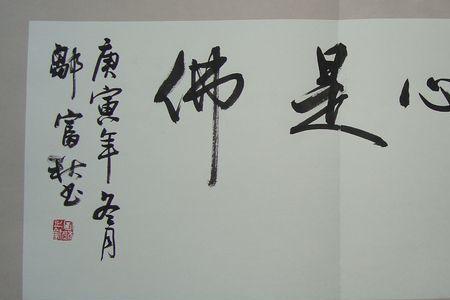 心是佛
庚寅年冬月
鄒富秋书